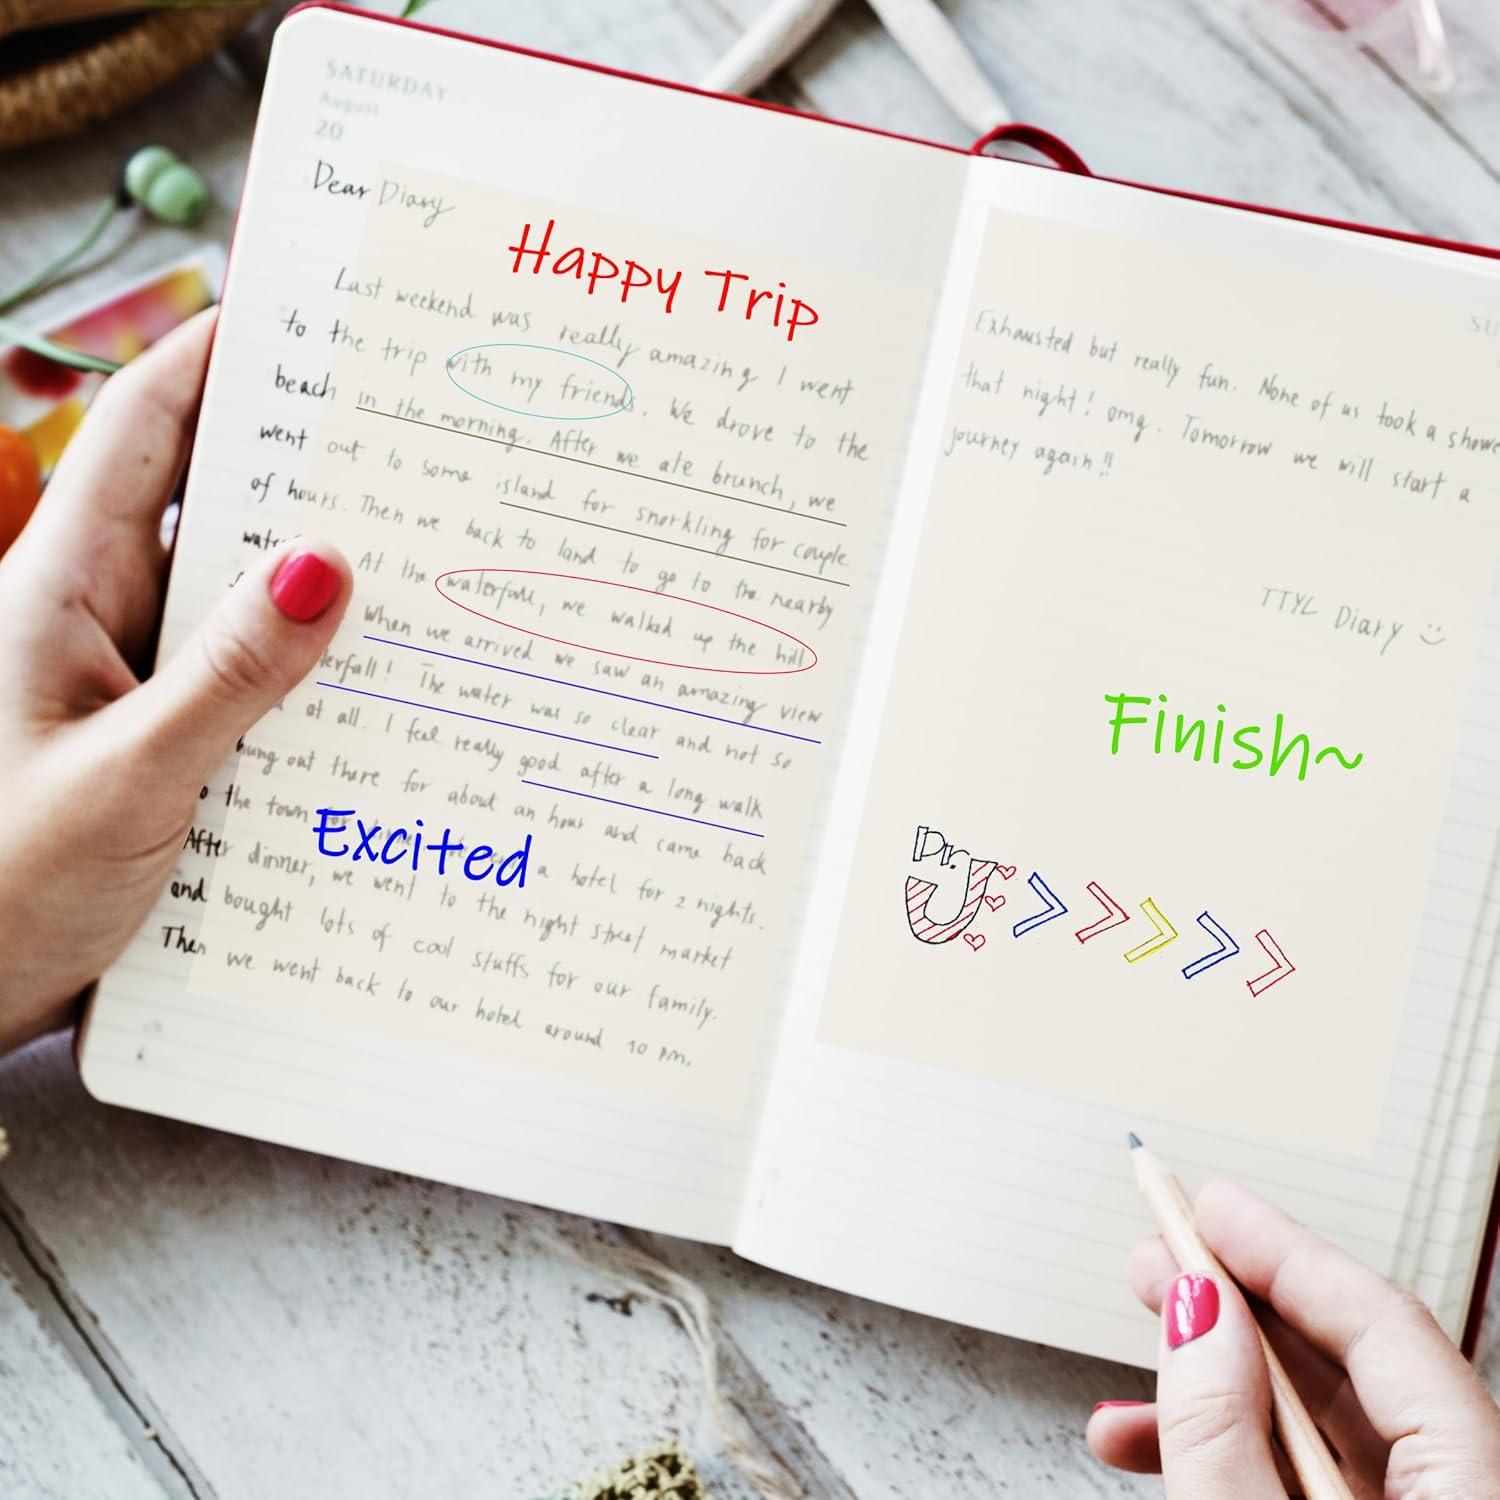 SATURDAY
August
20
Dear Diary
Happy Trip
Last weekend was really amazing I went
to the trip with my friends. We drove to the
beach in the morning. After we ate brunch, we
went out to some island for snorkling for couple
of hours. Then we back to land to go to the nearby
At the waterfall, we walked up the hill
When we arrived we saw an amazing view
terfall! The water was so clear and not so
at all. I feel really good after a long walk
hung out there for about an hour and came back
to the town a hotel for 2 nights.
Excited
After dinner, we went to the night street market
and bought lots of cool stuffs for our family.
Then we went back to our hotel around 10 pm.
SU
Exhausted but really fun. None of us took a showe
that night! omg. Tomorrow we will start a
journey again!!
TTYL Diary
Finish~
Dr. J